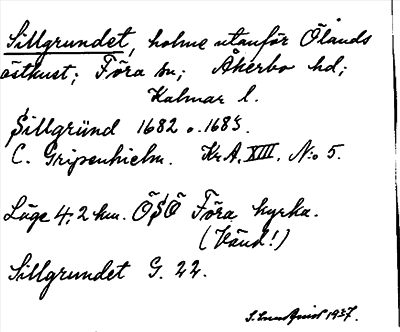 Sillgrundet, holme utanför Ölands
östkust; Föra sn; Åkerbo hd;
Kalmar l.
Sillgründ 1682 o. 1685.
C. Gripenhielm. Kr.A. XIII. N:o 5.
Läge 4,2 km. ÖSÖ Föra kyrka.
(Vänd!)
Sillgrundet G. 22.
1937.